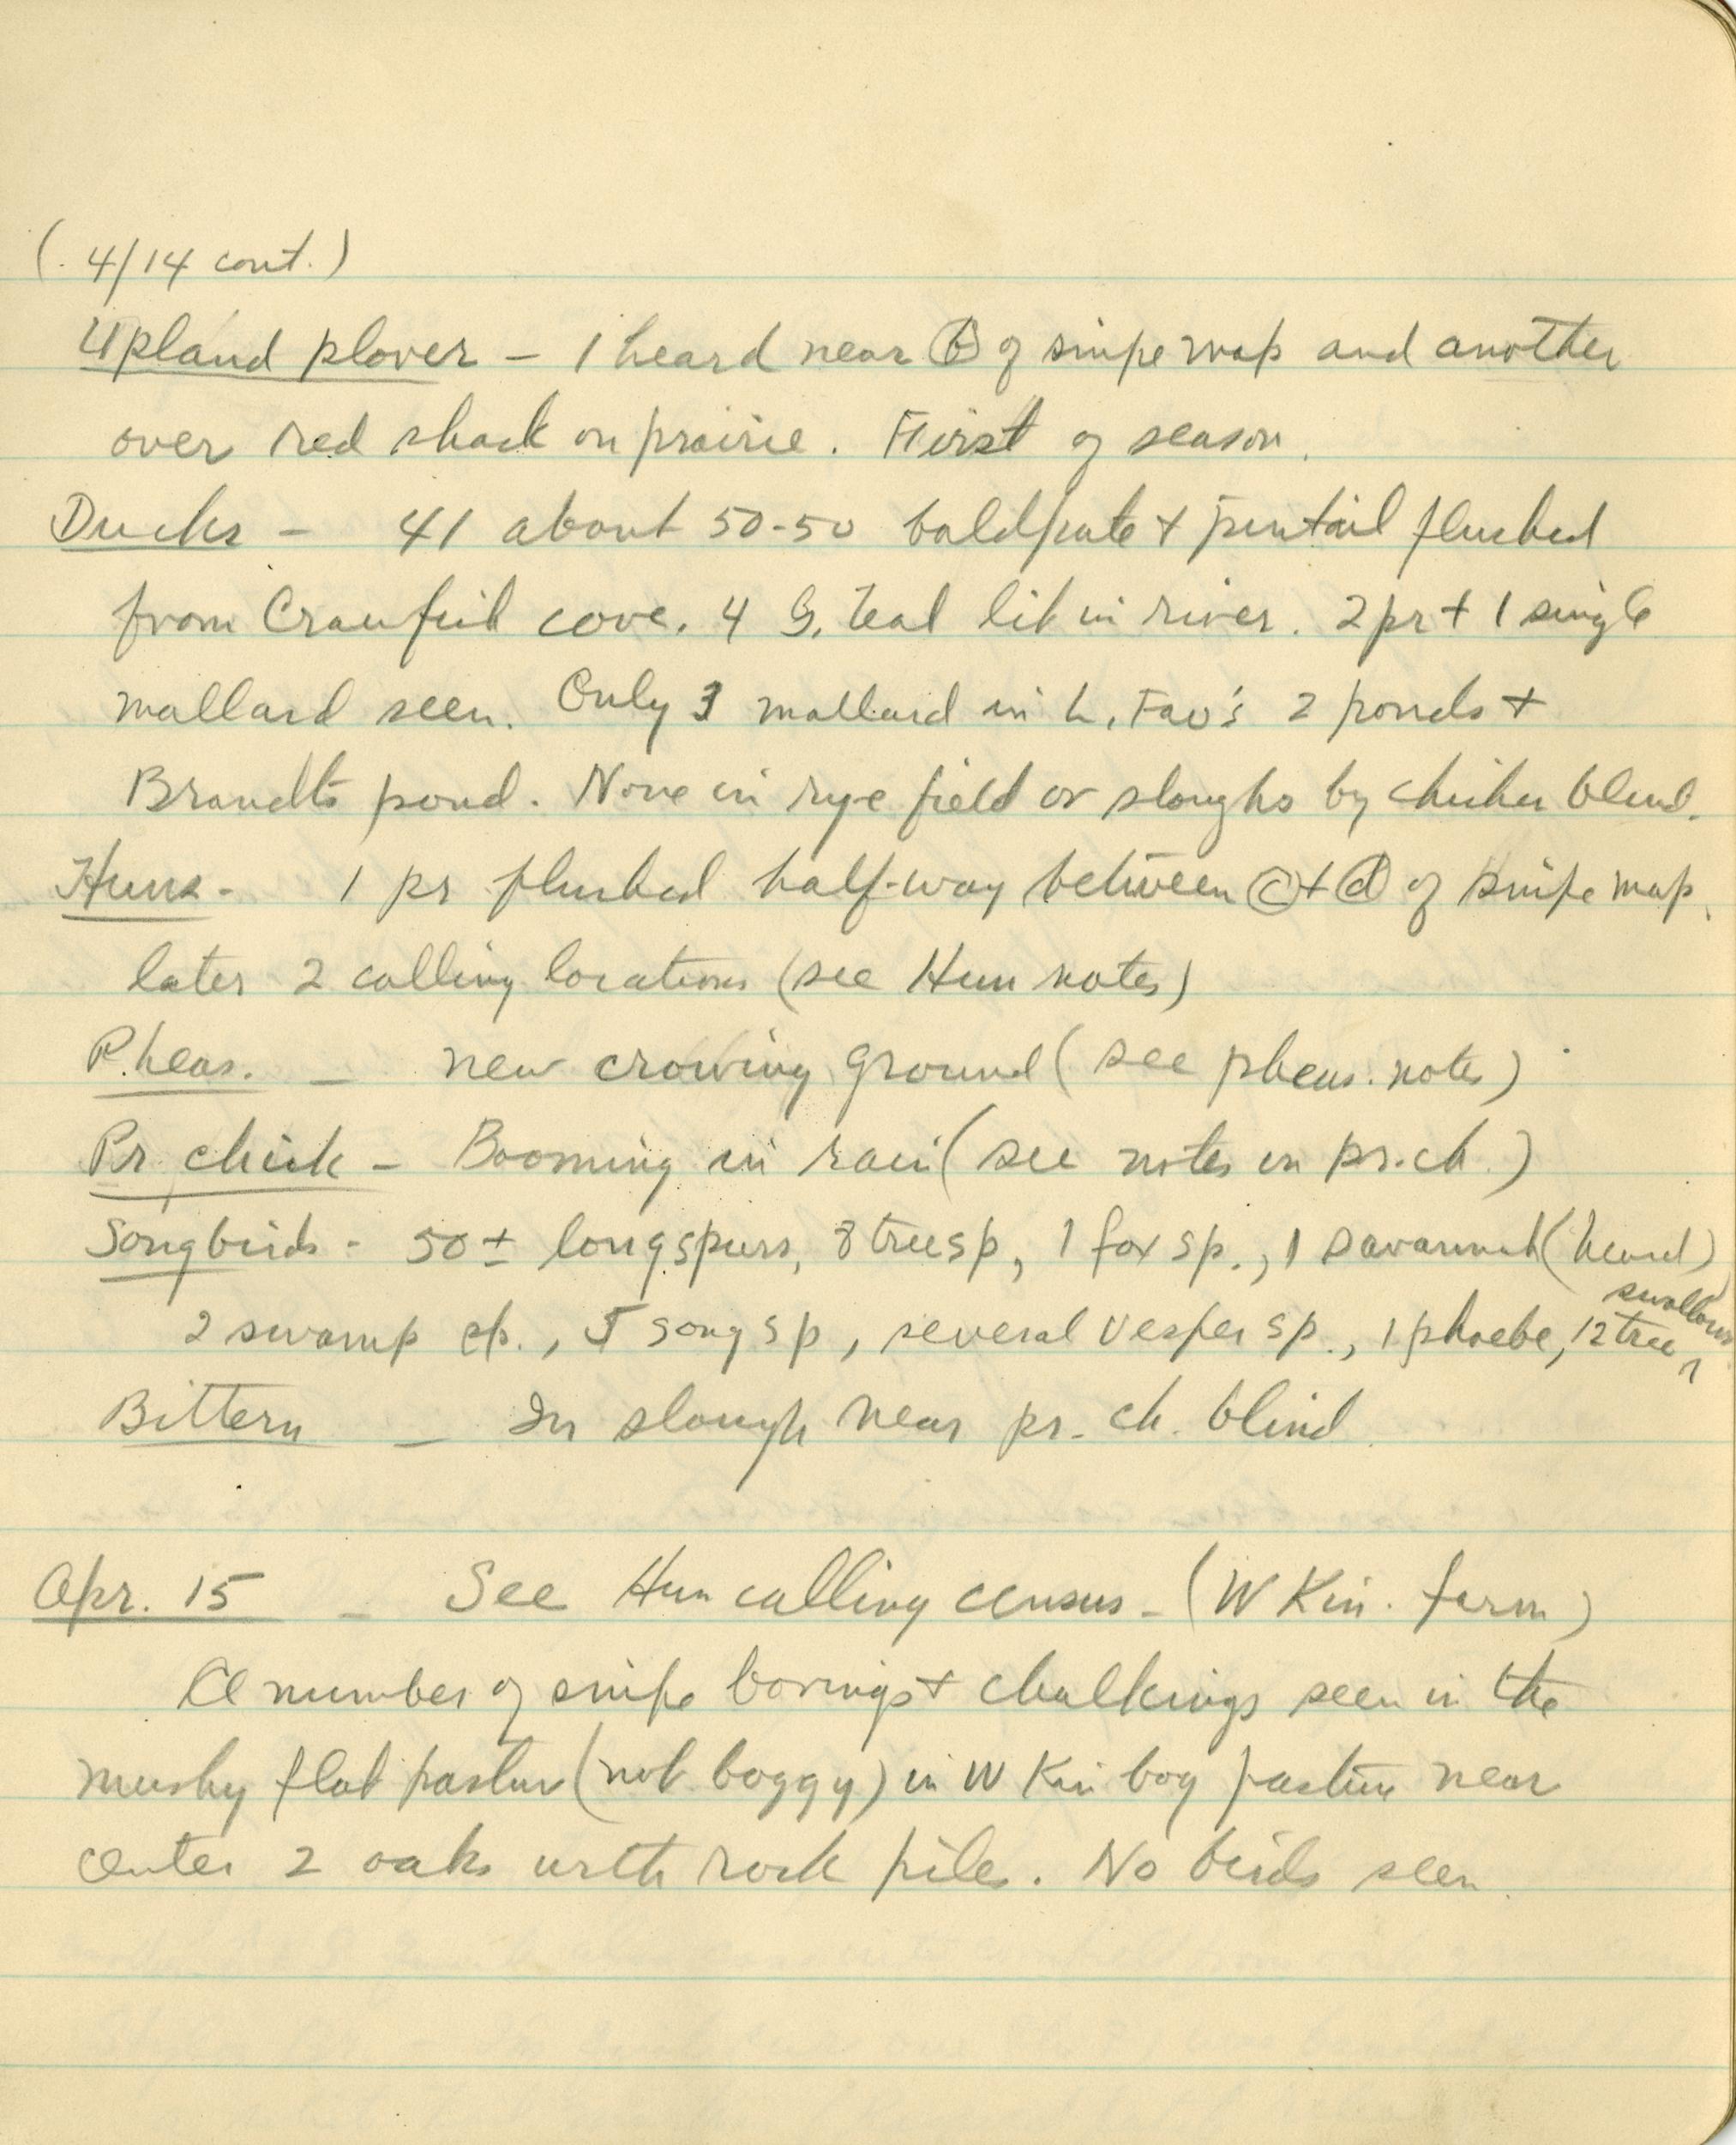 (. 4/14 cont.)
Upland plover - 1 heard near ⓑ of snipe map and another
over red shack on prairie. First of season.
Ducks - 41 about 50-50 baldpate + pintail flushed
from cove. 4 G. teal lit in river. 2 pr + 1 single
mallard seen. Only 3 mallard in L. Fav's 2 ponds +
Brandt's pond. None in rye field or sloughs by chicken blind.
Huns - 1 pr flushed half-way between ⓒ + ⓓ of snipe map,
later 2 calling locations (see Hun notes)
Pheas. - new crowing ground (see pheas. notes)
Pr chick - Booming in rain (see notes on pr. ch.)
Songbirds - 50± longspurs, 8 tree sp, 1 fox sp., 1 savannah (heard)
2 swamp sp., 5 song sp, several vesper sp., 1 phoebe, 12 tree swallows
Bittern - In slough near pr. ch. blind
Apr. 15 - See Hun calling census - (W Kin. farm)
A number of snipe borings + chalkings seen in the
mushy flat pasture (not boggy) in W Kin bog pasture near
center 2 oaks with rock piles. No birds seen.